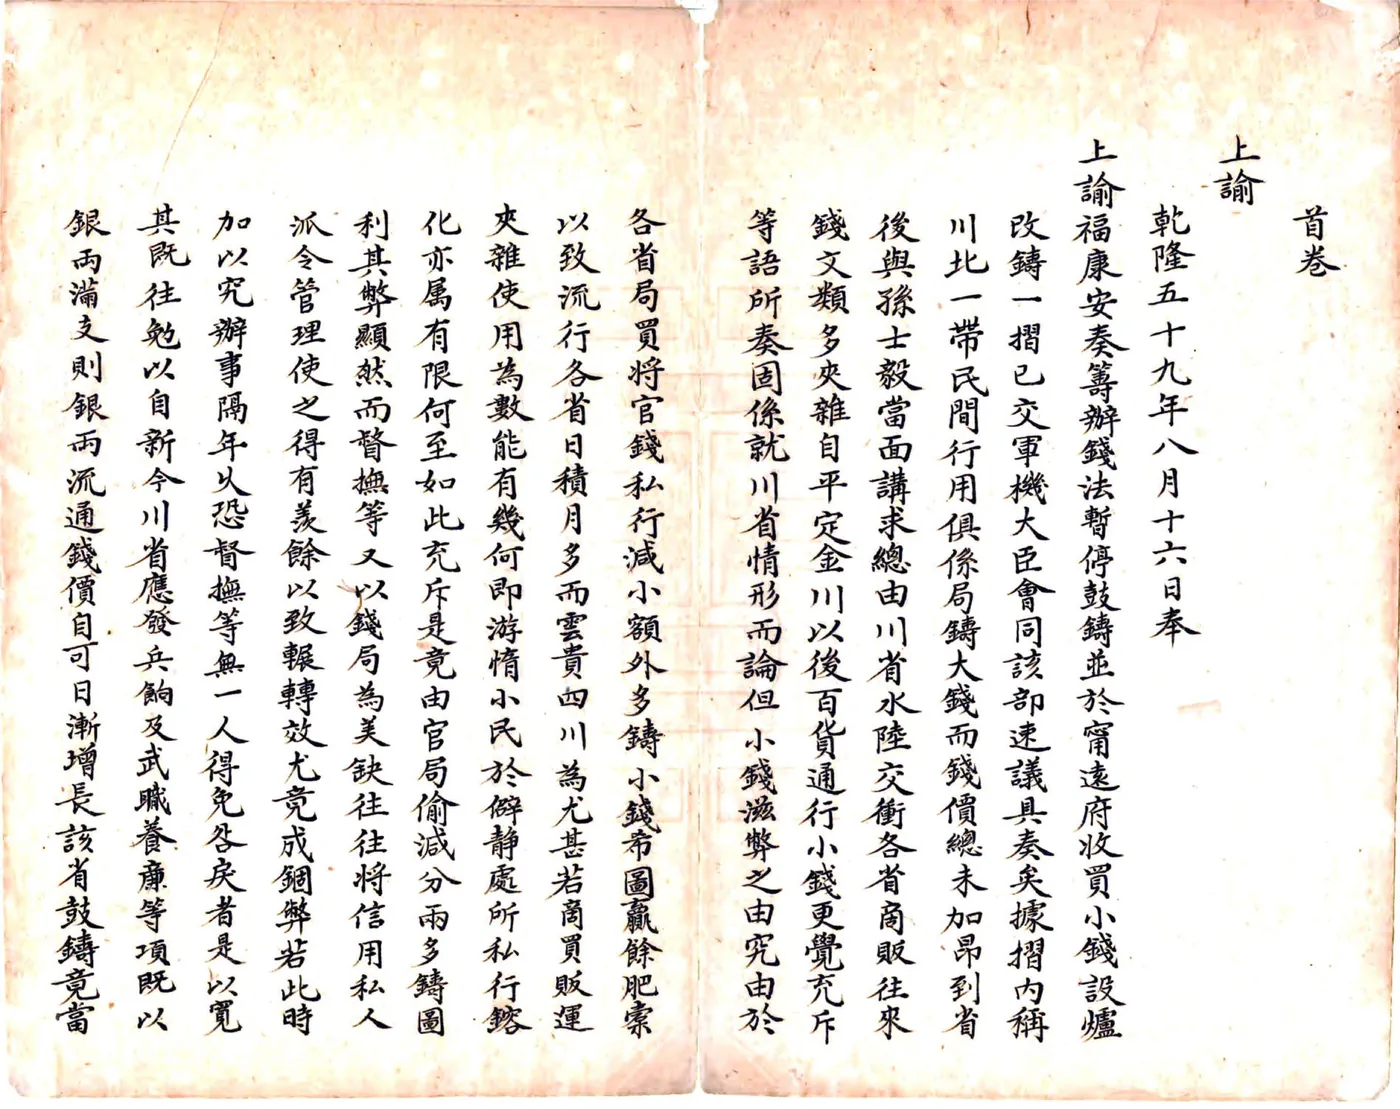 首卷
上諭
乾隆五十九年八月十六日奉
上諭福康安奏籌辦錢法暫停鼓鑄並於甯遠府收買小錢設爐
改鑄一摺已交軍機大臣會同該部速議具奏矣據摺内稱
川北一帶民間行用俱係局鑄大錢而錢價總未加昂到省
後與孫士毅當面講求總由川省水陸交衝各省商販往來
錢文類多夾雜自平定金川以後百貨通行小錢更覺充斥
等語所奏固係就川省情形而論但小錢滋弊之由究由於
各省局買將官錢私行減小額外多鑄小錢希圖贏餘肥槖
以致流行各省日積月多而雲貴四川為尤甚若商買販運
夾雜使用為數能有幾何即游惰小民於僻静處所私行鎔
化亦属有限何至如此充斥是竟由官局偷減分兩多鑄圖
利其弊顯然而督撫等又以錢局為美缺往往將信用私人
派令管理使之得有羨餘以致輾轉效尤竟成錮弊若此時
加以究辦事隔年久恐督撫等無一人得免咎戾者是以寬
其既往勉以自新今川省應發兵餉及武職養廉等項既以
銀兩滿支則銀兩流通錢價自可日漸增長該省鼓鑄竟當